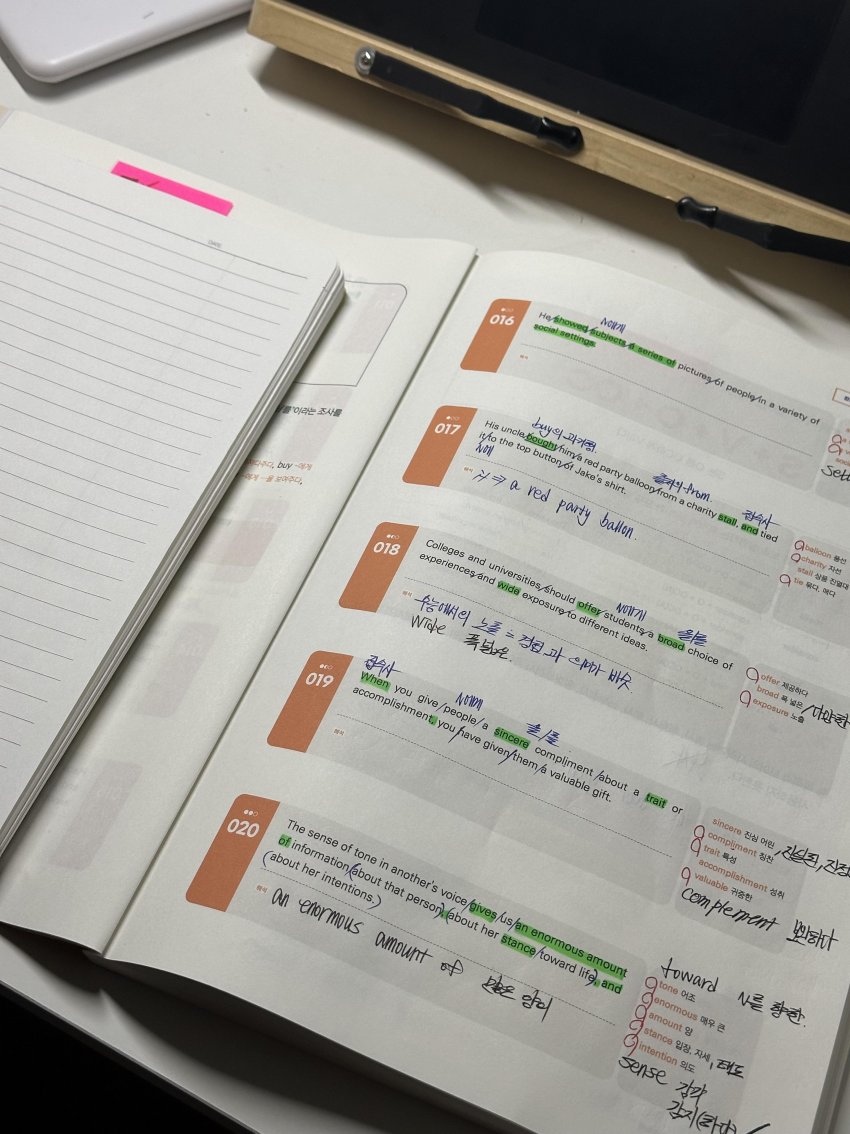 DATE
를'이라는 조사를
다주다, buy ~에게
~에게 …을 보여주다,
016
N에게
He showed subjects a series of pictures of people in a variety of
social settings.
해석
017
buy의 과거형.
His uncle bought him a red party balloon from a charity stall, and tied
it to the top button of Jake's shirt.
접속사
해석
a red party ballon.
balloon 풍선
charity 자선
stall 상품 진열대
tie 묶다, 매다
018
Colleges and universities should offer students a broad choice of
experiences and wide exposure to different ideas.
N에게
을/를
해석
wide 폭넓은.
offer 제공하다
broad 폭 넓은
exposure 노출
019
접속사
When you give people a sincere compliment about a trait or
accomplishment, you have given them a valuable gift.
을/를
해석
sincere 진심 어린
compliment 칭찬
trait 특성
accomplishment 성취
valuable 귀중한
complement 보완하다
020
The sense of tone in another's voice gives us an enormous amount
of information (about that person), (about her stance toward life), and
(about her intentions.)
해석
an enormous amount of 많은 양의
toward N를 향한.
tone 어조
enormous 매우 큰
amount 양
stance 입장, 자세, 태도
intention 의도
sense 감각
감지(하다)